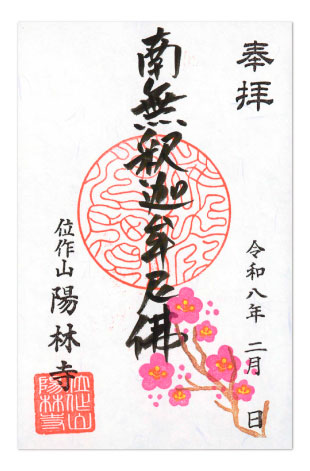 奉拝
令和八年 二月 日
南無釈迦牟尼佛
位作山 陽林寺
位作山
陽林寺